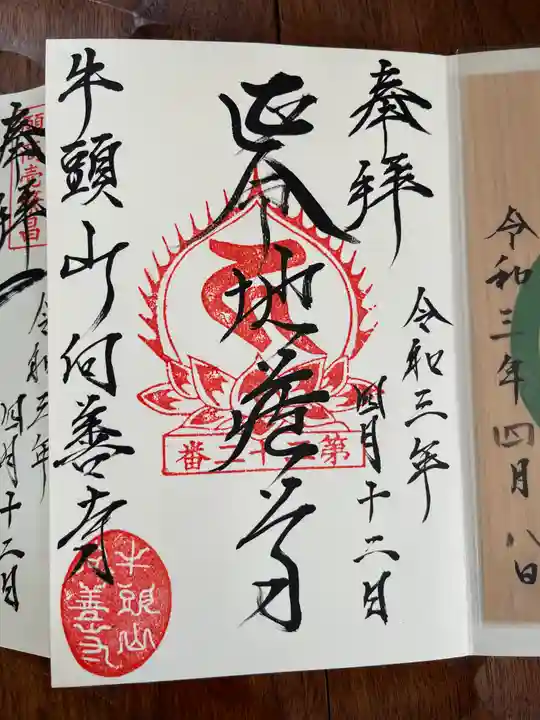 令和三年四月八日
奉拝
令和三年
四月十二日
延命地蔵尊
第二十二番
牛頭山何善寺
牛頭山
善寺
奉拝
令和三年
四月十二日